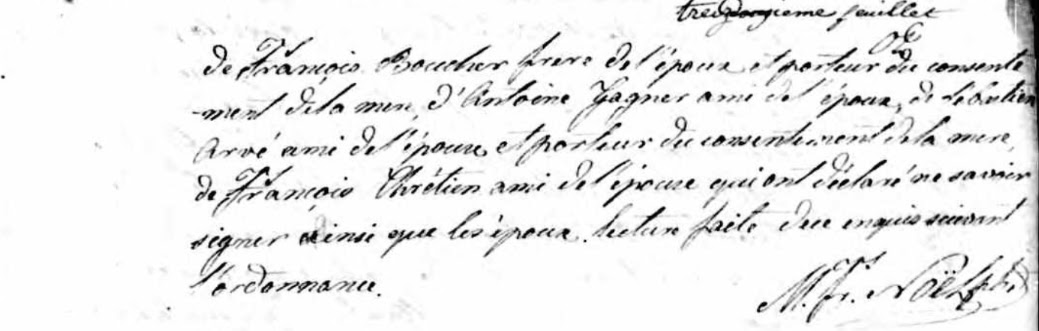 feuillet
de François Boucher frere de l'époux et porteur du consente
-ment de la mere, d'Antoine Gagner ami de l'époux, de Sébastien
Arvé ami de l'épouse et porteur du consentement de la mere,
de François Chrétien ami de l'épouse qui ont déclaré ne savoir
signer ainsi que les époux. lecture faite due enquis suivant
l'ordonnance.
M. Fr. Noël ptre